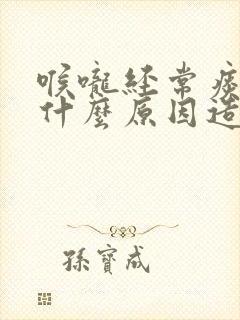 喉嚨経常痰
什麼原因造
孫寶成